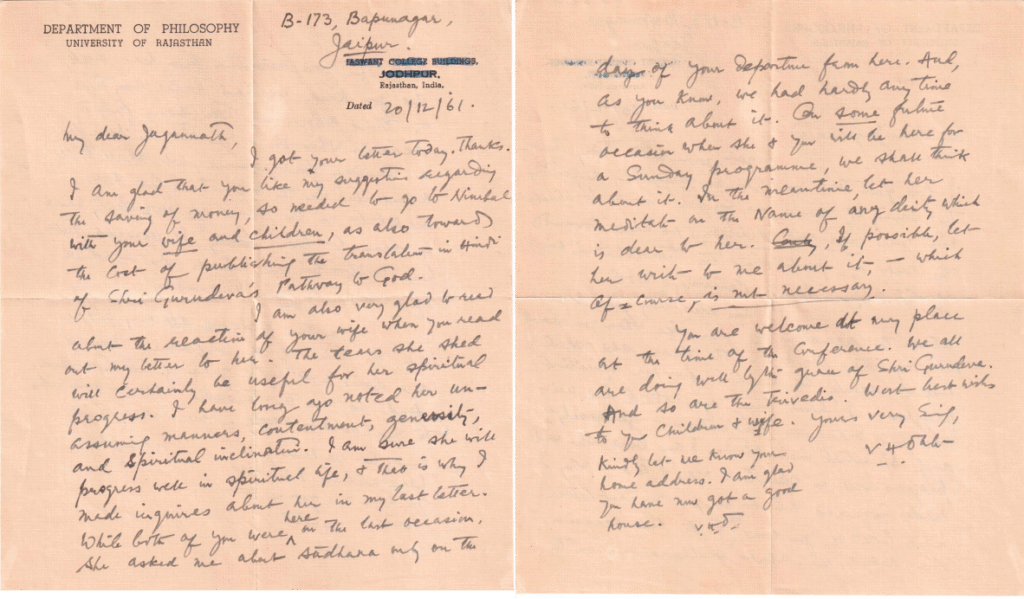 DEPARTMENT OF PHILOSOPHY
UNIVERSITY OF RAJASTHAN
B-173, Bapunagar,
Jaipur.
JASWANT COLLEGE BUILDINGS,
JODHPUR,
Rajasthan, India.
Dated 20/12/61.
My dear Jagannath,
I got your letter today. Thanks.
I am glad that you like my suggestion regarding
the saving of money, so needed to go to Nimbal
with your wife and children, as also towards
the cost of publishing the translation in Hindi
of Shri Gurudeva's Pathway to God.
I am also very glad to read
about the reaction of your wife when you read
out my letter to her. The tears she shed
will certainly be useful for her spiritual
progress. I have long ago noted her un-
assuming manners, contentment, generosity,
and spiritual inclination. I am sure she will
progress well in spiritual life, & that is why I
made inquires about her in my last letter.
While both of you were here on the last occasion,
she asked me about sadhana only on the
day of your departure from here. And,
as you know, we had hardly any time
to think about it. On some future
occasion when she & you will be here for
a Sunday programme, we shall think
about it. In the meantime, let her
meditate on the Name of any deity which
is dear to her. If possible, let
her write to me about it, – which
of course, is not necessary.
You are welcome at my place
at the time of the Conference. We all
are doing well by the grace of Shri Gurudeva.
And so are the Trivedis. With best wishes
to your children & wife. Yours very
Kindly let me know your
home address. I am glad
you have now got a good
house.